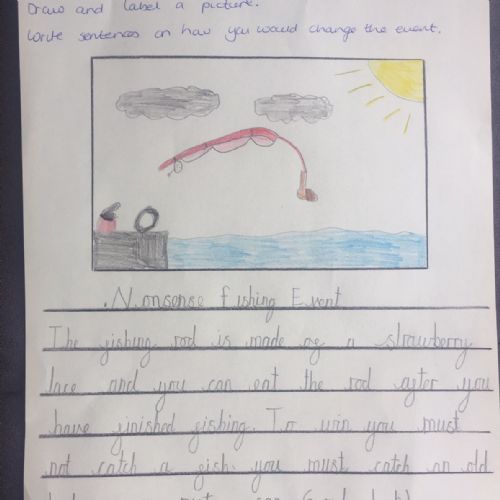 Draw and label a picture.
Write sentences on how you would change the event.
Nonsense Fishing Event
The fishing rod is made of a strawberry
lace and you can eat the rod after you
have finished fishing. To win you must
not catch a fish. you must catch an old